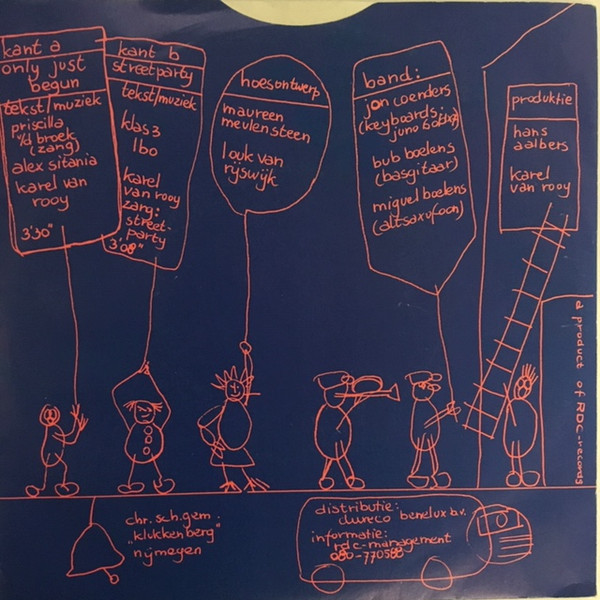 kant a
only just
begun
tekst/muziek
priscilla
v/d broek
(zang)
alex sitania
karel van
rooy
3'30"
kant b
streetparty
tekst/muziek
klas 3
lbo
karel
van rooy
zang:
street-
party
3'08"
hoesontwerp
maureen
meulensteen
louk van
rijswijk
band:
jan coenders
(keyboards:
juno 6
bub boelens
(basgitaar)
miquel boelens
(altsaxofoon)
produktie
hans
aalbers
karel
van rooy
a product of RDC-records
chr. sch. gem.
"klukkenberg"
nijmegen
distributie:
dureco benelux b.v.
informatie:
rdc-management
080-770588